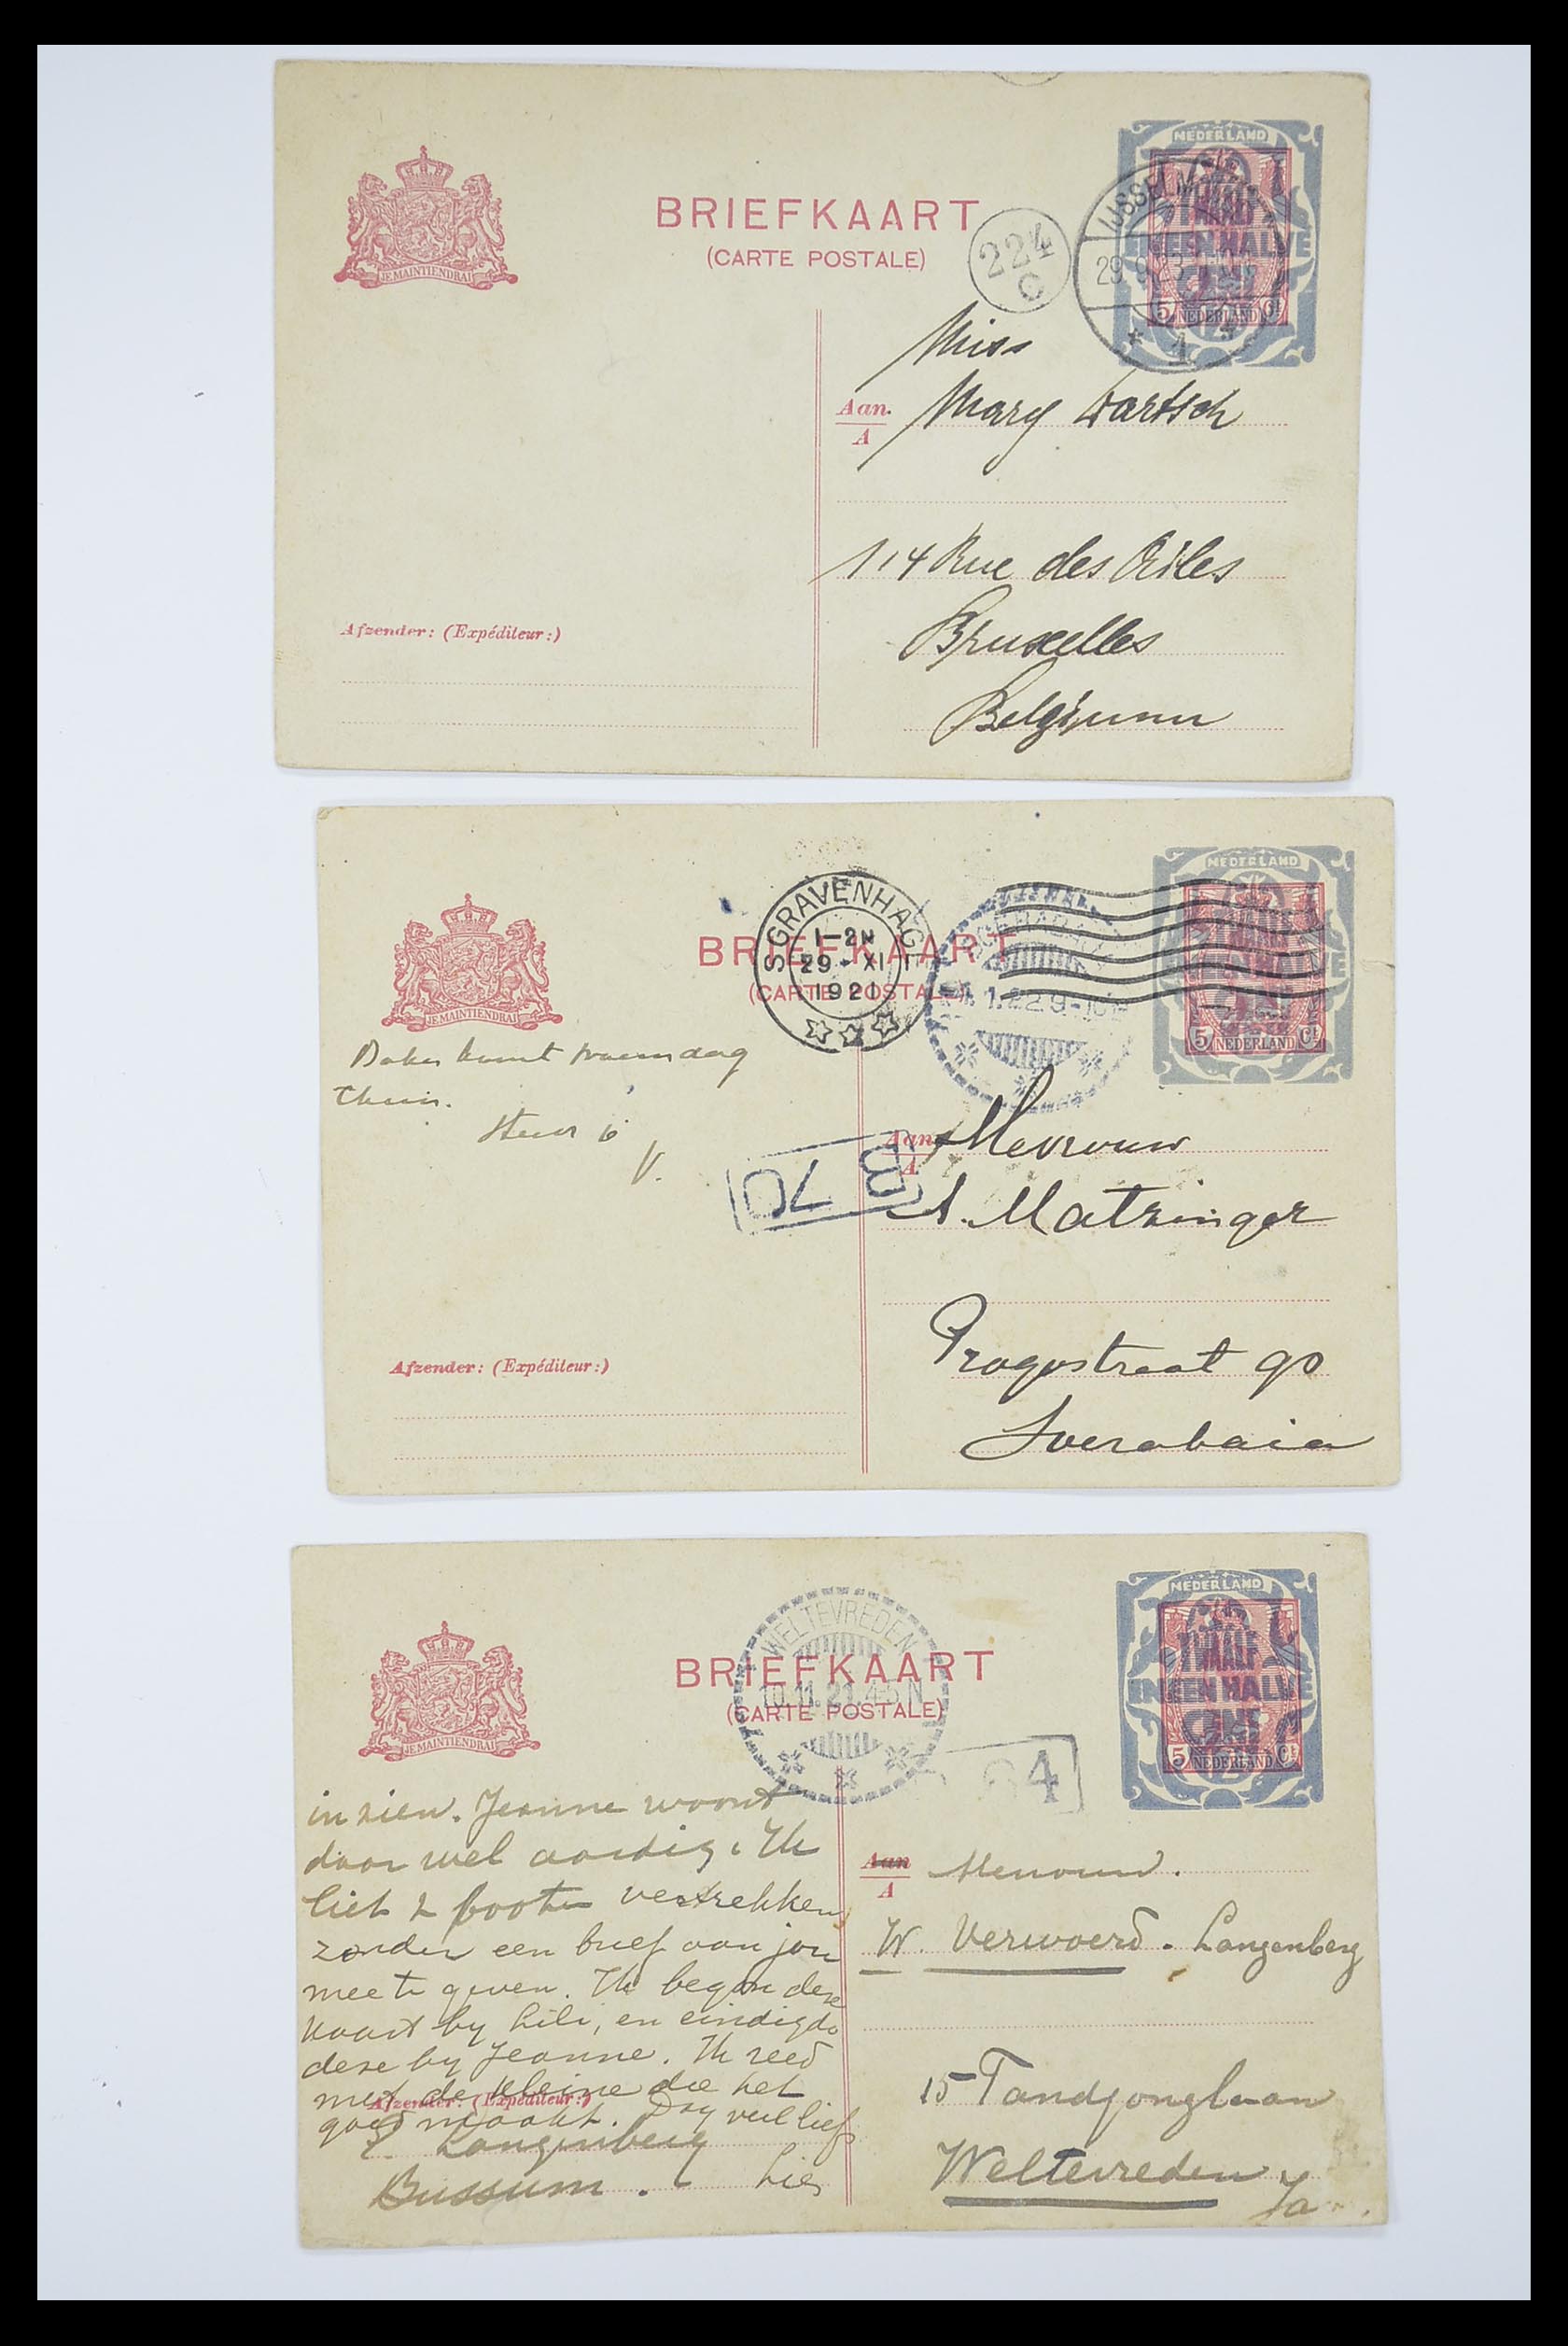 NEDERLAND
BRIEFKAART
(CARTE POSTALE)
JE MAINTIENDRAI
224
C
TWAALF
EN EEN HALVE
CENT
5 NEDERLAND Ct
1
Miss
Aan
A
Mary
114 Rue des
Bruxelles
Belgium
Afzender: (Expéditeur:)
NEDERLAND
'SGRAVENHAGE
1-2N
29-XI
1921
BRIEFKAART
(CARTE POSTALE)
1.22.9-10
TWAALF
EN EEN HALVE
CENT
5 NEDERLAND Ct
JE MAINTIENDRAI
komt
V.
B 70
Aan
A
Mevrouw
A. Matzinger
Progostraat 90
Soerabaia
Afzender: (Expéditeur:)
NEDERLAND
WELTEVREDEN
BRIEFKAART
10.11.21.4-5 N
(CARTE POSTALE)
TWAALF
EN EEN HALVE
CENT
5 NEDERLAND Ct
JE MAINTIENDRAI
4
in zien. Jeanne woont
daar wel aardig. Ik
liet 2 booten vertrekken
zonder een brief aan jou
mee te geven. Ik begon deze
kaart by Lili, en eindigde
deze by Jeanne. Ik reed
met de kleine die het
goed maakt. Dag veel liefs
Afzender: (Expéditeur:)
Langenberg
Bussum.
Aan
A
Mevrouw.
W. Verwoerd - Langenberg
15 Tandjonglaan
Weltevreden